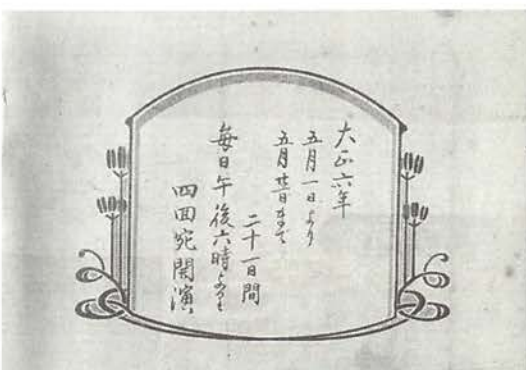 大正六年
五月一日より
五月廿一日まで
二十一日間
毎日午後六時より
四回宛開演